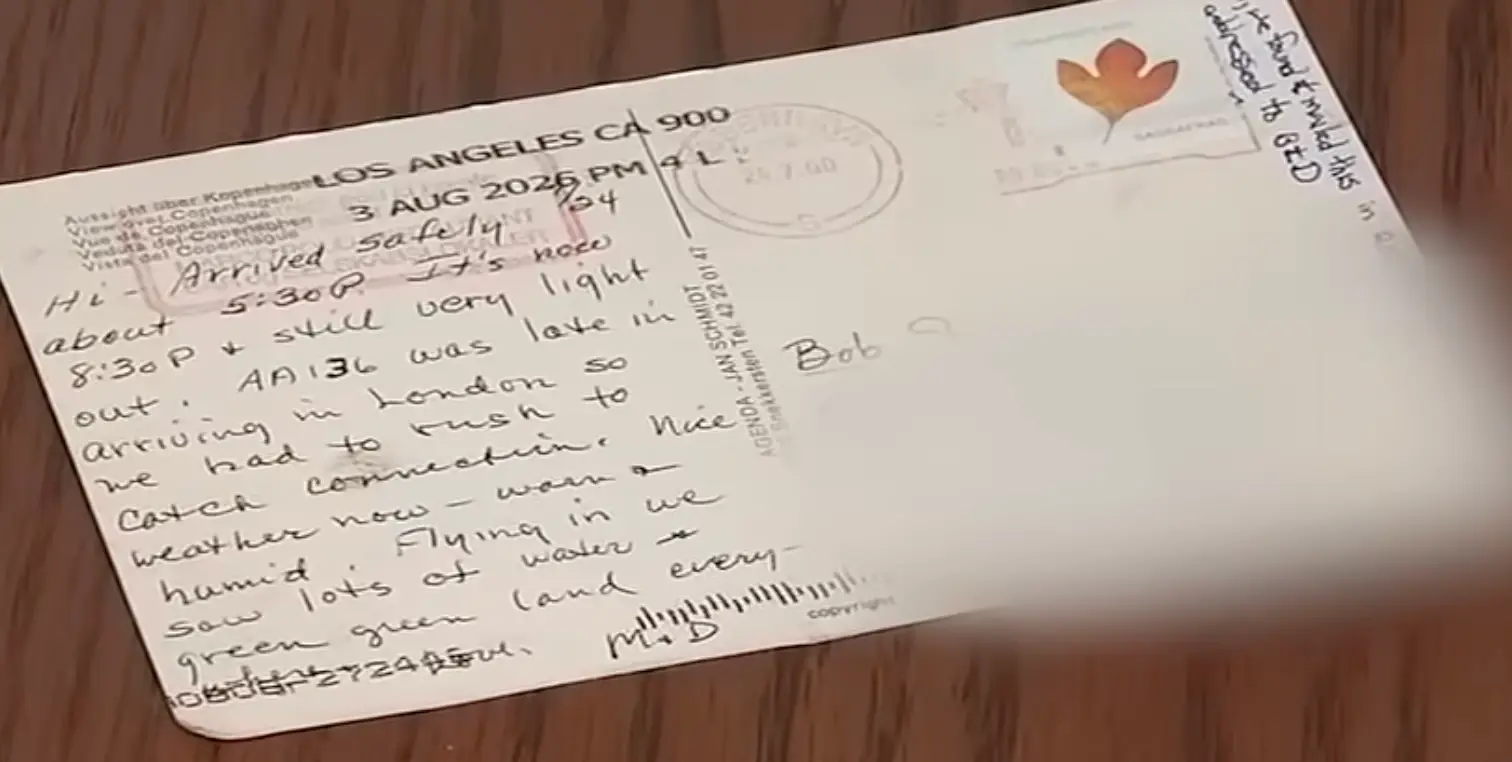 LOS ANGELES CA 900
3 AUG 2026 PM 4 L
Aussicht über Kopenhagen
View over Copenhagen
Vue de Copenhague
Veduta del Copenaghen
Vista del Copenhague
7/24
Hi - Arrived safely
about 5:30P. It's now
8:30P + still very light
out. AA136 was late in
arriving in London so
we had to rush to
catch connection. Nice
weather now - warm +
humid. Flying in we
saw lots of water +
green green land every-
M+D
AGENDA - JAN SCHMIDT
Tel. 42 22 01 47
copyright
Bob
24.7.00
SASSAFRAS
We found & mailed this in
addressed to